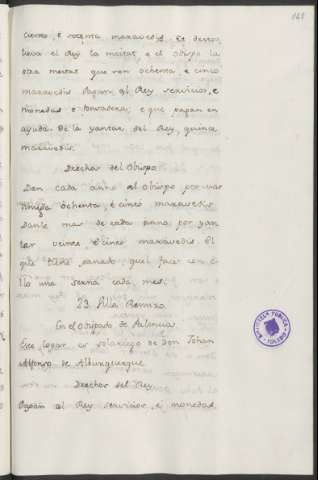 161
ciento, e setenta maravedis. Et destos
lieva el Rey la meitat, e el obispo la
otra meitat que son ochenta, e cinco
maravedis. Pagan al Rey servicios, e
monedas e fonsadera; e que pagan en
ayuda de la yantar del Rey, quince
maravedis.
Derechos del Obispo.
Dan cada anno al obispo por mar
ochenta, e cinco maravedis
Danle mas de cada anno por yan
tar veinte e cinco maravedis El
que tiene ganado, quel facen con e
llo una serna cada mes.
23 Villa Ramiro
En el Obispado de Palencia.
Este logar es solariego de Don Johan
Alfonso de Alburquerque
Derechos del Rey
Pagan al Rey servicios, e monedas,
BIBLIOTECA PUBLICA
TOLEDO